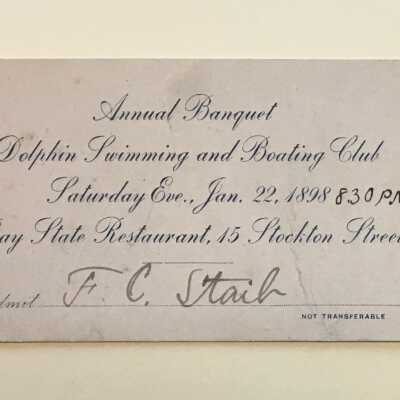 Annual Banquet
Dolphin Swimming and Boating Club
Saturday Eve., Jan. 22, 1898 830 PM
ay State Restaurant, 15 Stockton Stree
dmit F. C. Staib
NOT TRANSFERABLE